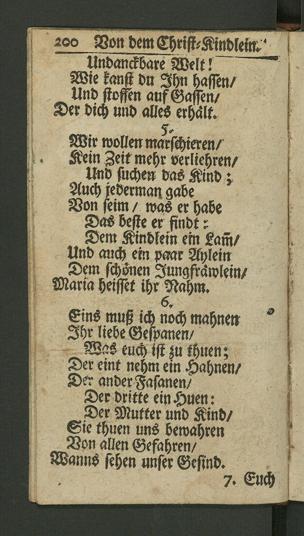 200 Von dem Christ-Kindlein.
Undanckbare Welt!
Wie kanst du Ihn hassen/
Und stossen auf Gassen/
Der dich und alles erhält.
5.
Wir wollen marschieren/
Kein Zeit mehr verliehren/
Und suchen das Kind;
Auch jederman gabe
Von seim/ was er habe
Das beste er findt:
Dem Kindlein ein Lam̃/
Und auch ein paar Aylein
Dem schönen Jungfräwlein/
Maria heisset ihr Nahm.
6.
Eins muß ich noch mahnen
Ihr liebe Gespanen/
Was euch ist zu thuen;
Der eint nehm ein Hahnen/
Der ander Fasanen/
Der dritte ein Huen:
Der Mutter und Kind/
Sie thuen uns bewahren
Von allen Gefahren/
Wanns sehen unser Gesind.
7. Euch